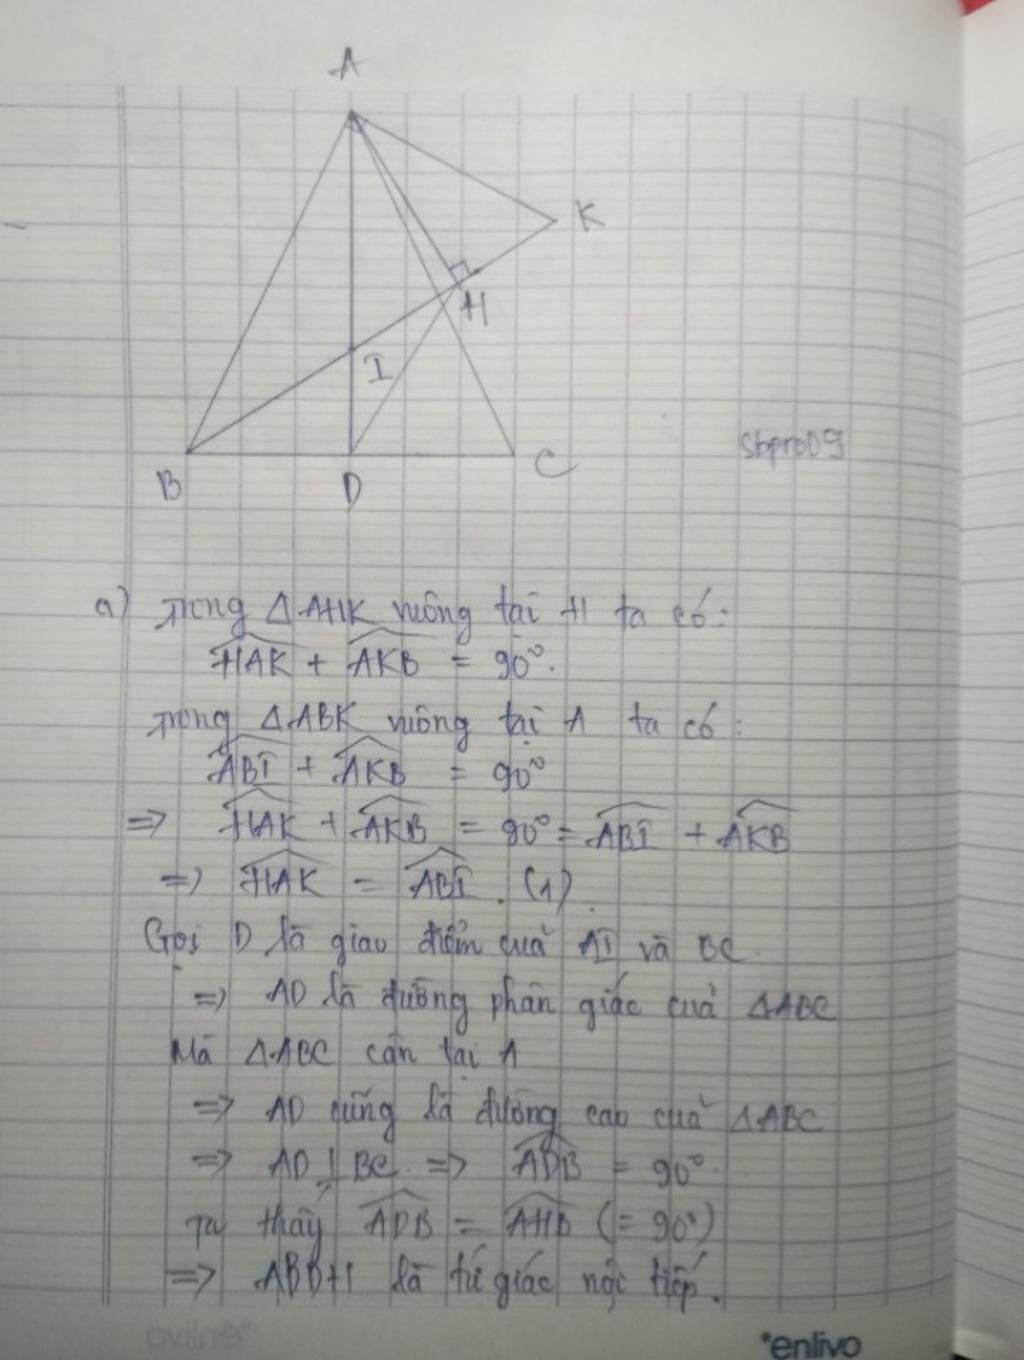 A
K
H
I
B
D
C
sbpro09
a) Trong △AHK vuông tại H ta có:
HAK + AKB = 90°.
Trong △ABK vuông tại A ta có:
ABI + AKB = 90°
=> HAK + AKB = 90° = ABI + AKB
=> HAK = ABI. (1).
Gọi D là giao điểm của AI và BC.
=> AD là đường phân giác của △ABC
Mà △ABC cân tại A
=> AD cũng là đường cao của △ABC
=> AD ⊥ BC. => ADB = 90°.
Ta thấy ADB = AHB (= 90°)
=> ABDH là tứ giác nội tiếp.
oviline*
*enlivo